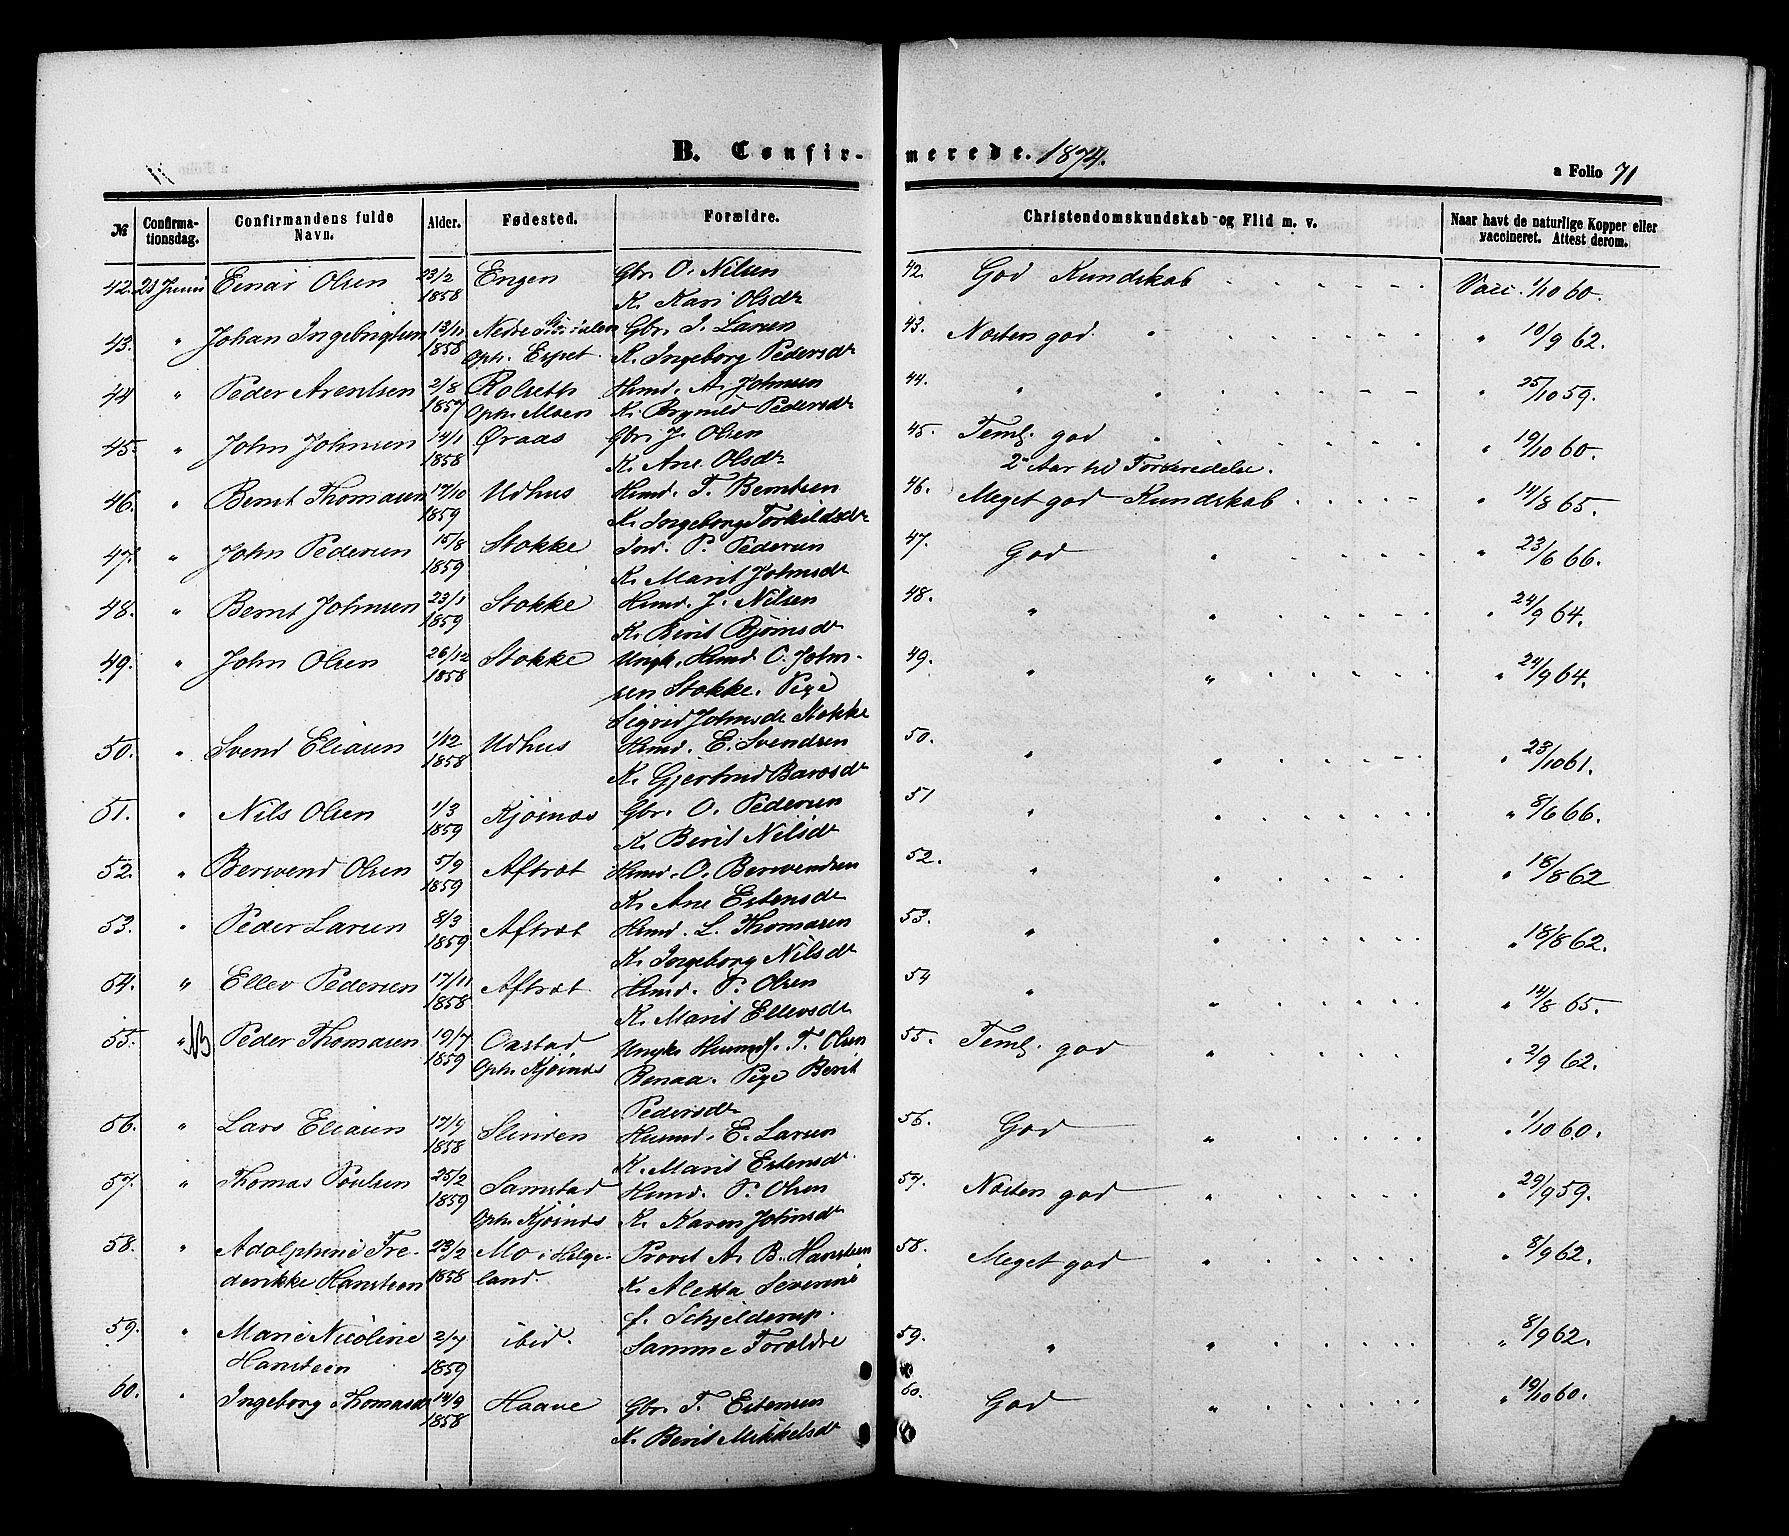 B. Confirmerede. 1874.
a Folio 71
№ Confirmationsdag. Confirmandens fulde Navn. Alder. Fødested. Forældre. Christendomskundskab og Flid m. v. Naar havt de naturlige Kopper eller vaccineret. Attest derom.
42. 21 Juni Einar Olsen 23/2 1858 Engen Gbr. O. Nilsen 42. God Kundskab Vacc. 1/10 60.
K. Kari Olsdr
43. " Johan Ingebrigtsen 13/11 1858 Nedre Gbr. I. Larsen 43. Næsten god " " 10/9 62.
Oph. Espet K. Ingeborg Pedersdr
44 " Peder Arentsen 2/8 1857 Rolseth Hmd. A. Johnsen 44. " " " 25/10 59.
Oph. Moen K. Brynild Pedersdr
45. " John Johnsen 14/1 1858 Øraas Gbr. J. Olsen 45. Teml. god " " 19/10 60.
K. Ane Olsdr 2 Aar til Forberedelse.
46. " Bernt Thomasen 17/10 1859 Udhus Hmd. T. Berntsen 46. Meget god Kundskab " 14/8 65.
K. Ingeborg Torkildsdr
47. " John Pedersen 15/8 1859 Stokke Ind. P. Pedersen 47. God " " 23/6 66.
K. Marit Johnsdr
48. " Bernt Johnsen 23/1 1859 Stokke Hmd. J. Nilsen 48. " " " 24/9 64.
K. Berit Bjørnsdr
49. " John Olsen 26/12 1858 Stokke Ungk. Hmd. O. John- 49. " " " 24/9 64.
sen Stokke. Pige
Sigrid Johnsdr Stokke
50. " Svend Eliasen 1/12 1858 Udhus Hmd. E. Svendsen 50. " " " 23/10 61.
K. Gjertrud Barosdr
51. " Nils Olsen 1/3 1859 Kjøsnæs Gbr. O. Pedersen 51 " " " 8/6 66.
K. Berit Nilsdr
52. " Bersvend Olsen 5/9 1859 Aftræt Hmd. O. Bersvendsen 52. " " " 18/8 62
K. Ane Estensdr
53. " Peder Larsen 8/3 1859 Aftræt Hmd. L. Thomasen 53. " " " 18/8 62.
K. Ingeborg Nilsdr
54. " Ellev Pedersen 17/11 1858 Aftræt Hmd. P. Olsen 54 " " " 14/8 65.
K. Marit Ellevsdr
55. " NB Peder Thomasen 19/7 1859 Oastad Ungk. T. Olsen 55. Teml. god " " 2/9 62.
Oph. Kjøsnæs Renaa. Pige Berit
Pedersdr
56. " Lars Eliasen 17/9 1858 Slinden Husmd. E. Larsen 56. God " " 1/10 60.
K. Marit Estensdr.
57. " Thomas Poulsen 25/2 1859 Samstad Hmd. P. Olsen 57. Næsten god " " 29/9 59.
Oph. Kjøsnæs K. Karen Johnsdr
58. " Adolphine Fre- 23/2 1858 Mo i Helge- Provst A. B. Hansteen 58. Meget god " " 8/9 62.
derikke Hansteen land. K. Aletta Severine
f. Schjelderup.
59. " Marie Nicoline 2/7 1859 ibid. Samme Forældre 59. " " " 8/9 62.
Hansteen
60. " Ingeborg Thomasdr 14/9 1858 Haave Gbr. T. Estensen 60. God " " 19/10 60.
K. Berit Mikkelsdr